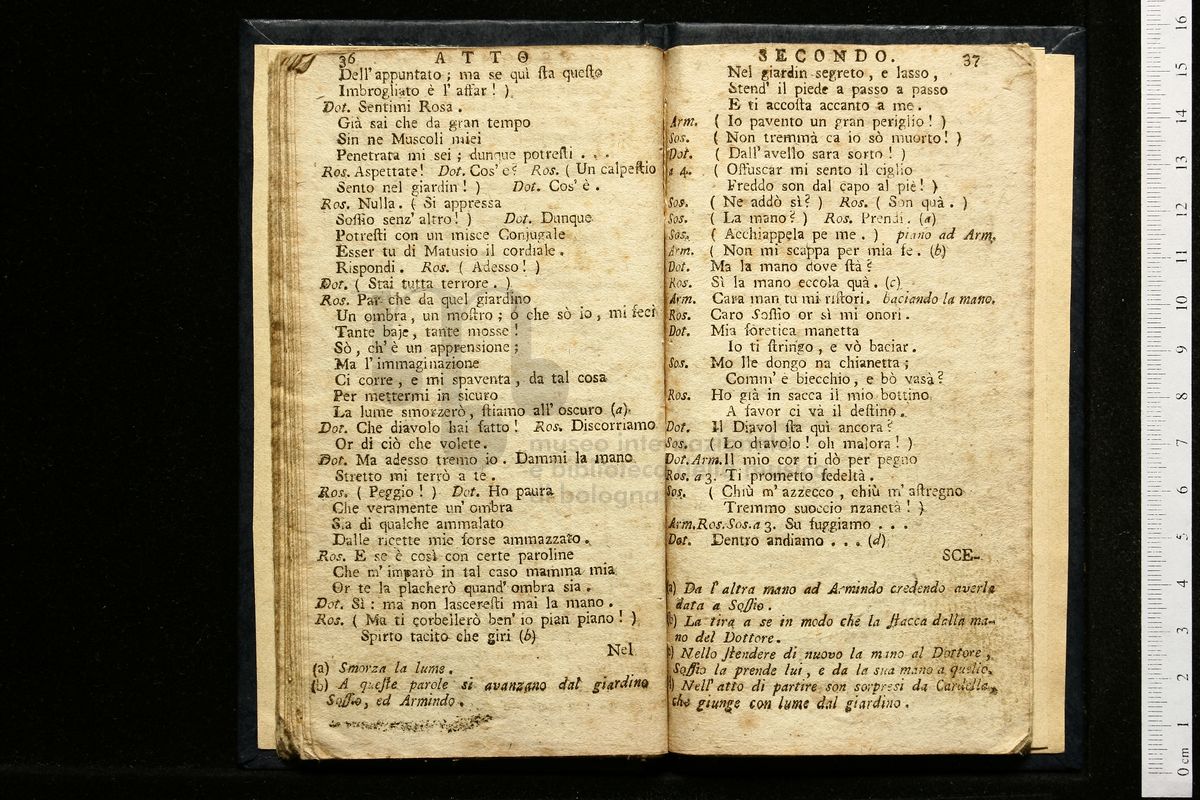 36 ATTO
Dell' appuntato ; ma se quì sta questo
Imbrogliato è l' affar ! )
Dot. Sentimi Rosa .
Già sai che da gran tempo
Sin ne Muscoli miei
Penetrata mi sei ; dunque potresti . . .
Ros. Aspettate! Dot. Cos' e? Ros. ( Un calpestio
Sento nel giardin ! ) Dot. Cos' è .
Ros. Nulla . ( Si appressa
Soffio senz' altro ! ) Dot. Dunque
Potresti con un misce Conjugale
Esser tu di Matusio il cordiale .
Rispondi . Ros. ( Adesso ! )
Dot. ( Stai tutta terrore . )
Ros. Par che da quel giardino
Un ombra , un mostro ; o che sò io , mi feci
Tante baje , tante mosse !
Sò , ch' è un apprensione ;
Ma l' immaginazione
Ci corre , e mi spaventa , da tal cosa
Per mettermi in sicuro
La lume smorzerò , stiamo all' oscuro (a).
Dot. Che diavolo hai fatto ! Ros. Discorriamo
Or di ciò che volete .
Dot. Ma adesso tremo io . Dammi la mano
Stretto mi terrò a te .
Ros. ( Peggio ! ) Dot. Ho paura
Che veramente un' ombra
Sia di qualche ammalato
Dalle ricette mie forse ammazzato .
Ros. E se è così con certe paroline
Che m' imparò in tal caso mamma mia
Or te la placherò quand' ombra sia .
Dot. Sì : ma non lasceresti mai la mano .
Ros. ( Ma ti corbellerò ben' io pian piano ! )
Spirto tacito che giri (b)
Nel
(a) Smorza la lume.
(b) A queste parole si avanzano dal giardino
Soffio, ed Armindo .
SECONDO. 37
Nel giardin segreto , e lasso ,
Stend' il piede a passo a passo
E ti accosta accanto a me .
Arm. ( Io pavento un gran periglio ! )
Sos. ( Non tremmà ca io sò muorto ! )
Dot. ( Dall' avello sara sorto ! )
a 4. ( Offuscar mi sento il ciglio
Freddo son dal capo al piè ! )
Sos. ( Ne addò sì ? ) Ros. ( Son quà . )
Sos. ( La mano ? ) Ros. Prendi . (a)
Sos. ( Acchiappela pe me . ) piano ad Arm.
Arm. ( Non mi scappa per mia fe . (b)
Dot. Ma la mano dove stà ?
Ros. Sì la mano eccola quà . (c)
Arm. Cara man tu mi ristori . baciando la mano.
Ros. Caro Soffio or sì mi onori .
Dot. Mia foretica manetta
Io ti stringo , e vò baciar .
Sos. Mo lle dongo na chianetta ;
Comm' è biecchio , e bò vasà ?
Ros. Ho già in sacca il mio bottino
A favor ci và il destino .
Dot. Il Diavol sta quì ancora ?
Sos. ( Lo diavolo ! oh malora ! )
Dot.Arm. Il mio cor ti dò per pegno
Ros. a 3. Ti prometto fedeltà .
Sos. ( Chiù m' azzecco , chiù m' astregno
Tremmo suoccio nzanetà ! )
Arm.Ros.Sos.a 3. Su fuggiamo . . .
Dot. Dentro andiamo . . . (d)
SCE-
a) Da l' altra mano ad Armindo credendo averla
data a Soffio .
b) La tira a se in modo che la stacca dalla ma-
no del Dottore .
) Nello stendere di nuovo la mano al Dottore ,
Soffio la prende lui , e da la sua mano a quello.
) Nell' atto di partire son sorpresi da Cardella,
che giunge con lume dal giardino .
museo internazionale
e biblioteca della musica
di bologna
0 cm 1 2 3 4 5 6 7 8 9 10 11 12 13 14 15 16